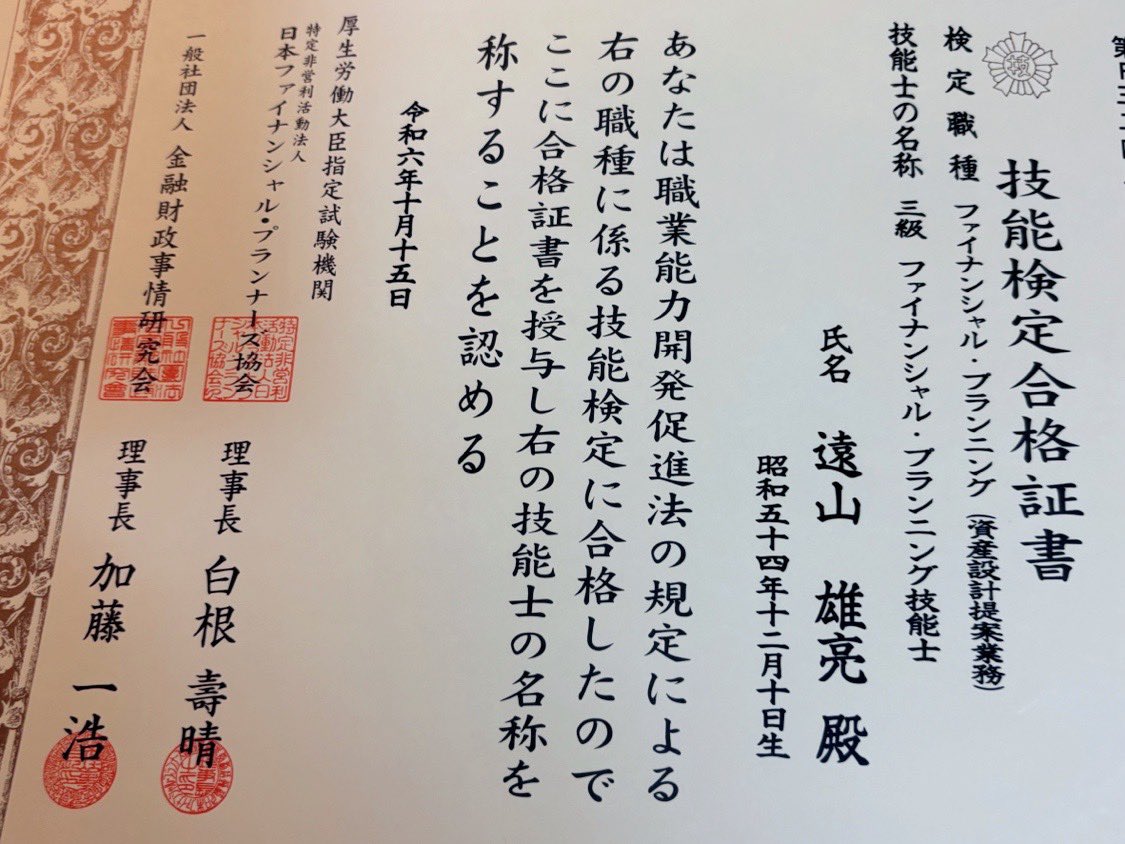 技能検定合格証書
検定職種 ファイナンシャル・プランニング(資産設計提案業務)
技能士の名称 三級 ファイナンシャル・プランニング技能士
氏名 遠山 雄亮 殿
昭和五十四年十二月十日生
あなたは職業能力開発促進法の規定による
右の職種に係る技能検定に合格したので
ここに合格証書を授与し右の技能士の名称を
称することを認める
令和六年十月十五日
厚生労働大臣指定試験機関
特定非営利活動法人
日本ファイナンシャル・プランナーズ協会 理事長 白根 壽晴
一般社団法人 金融財政事情研究会 理事長 加藤 一浩